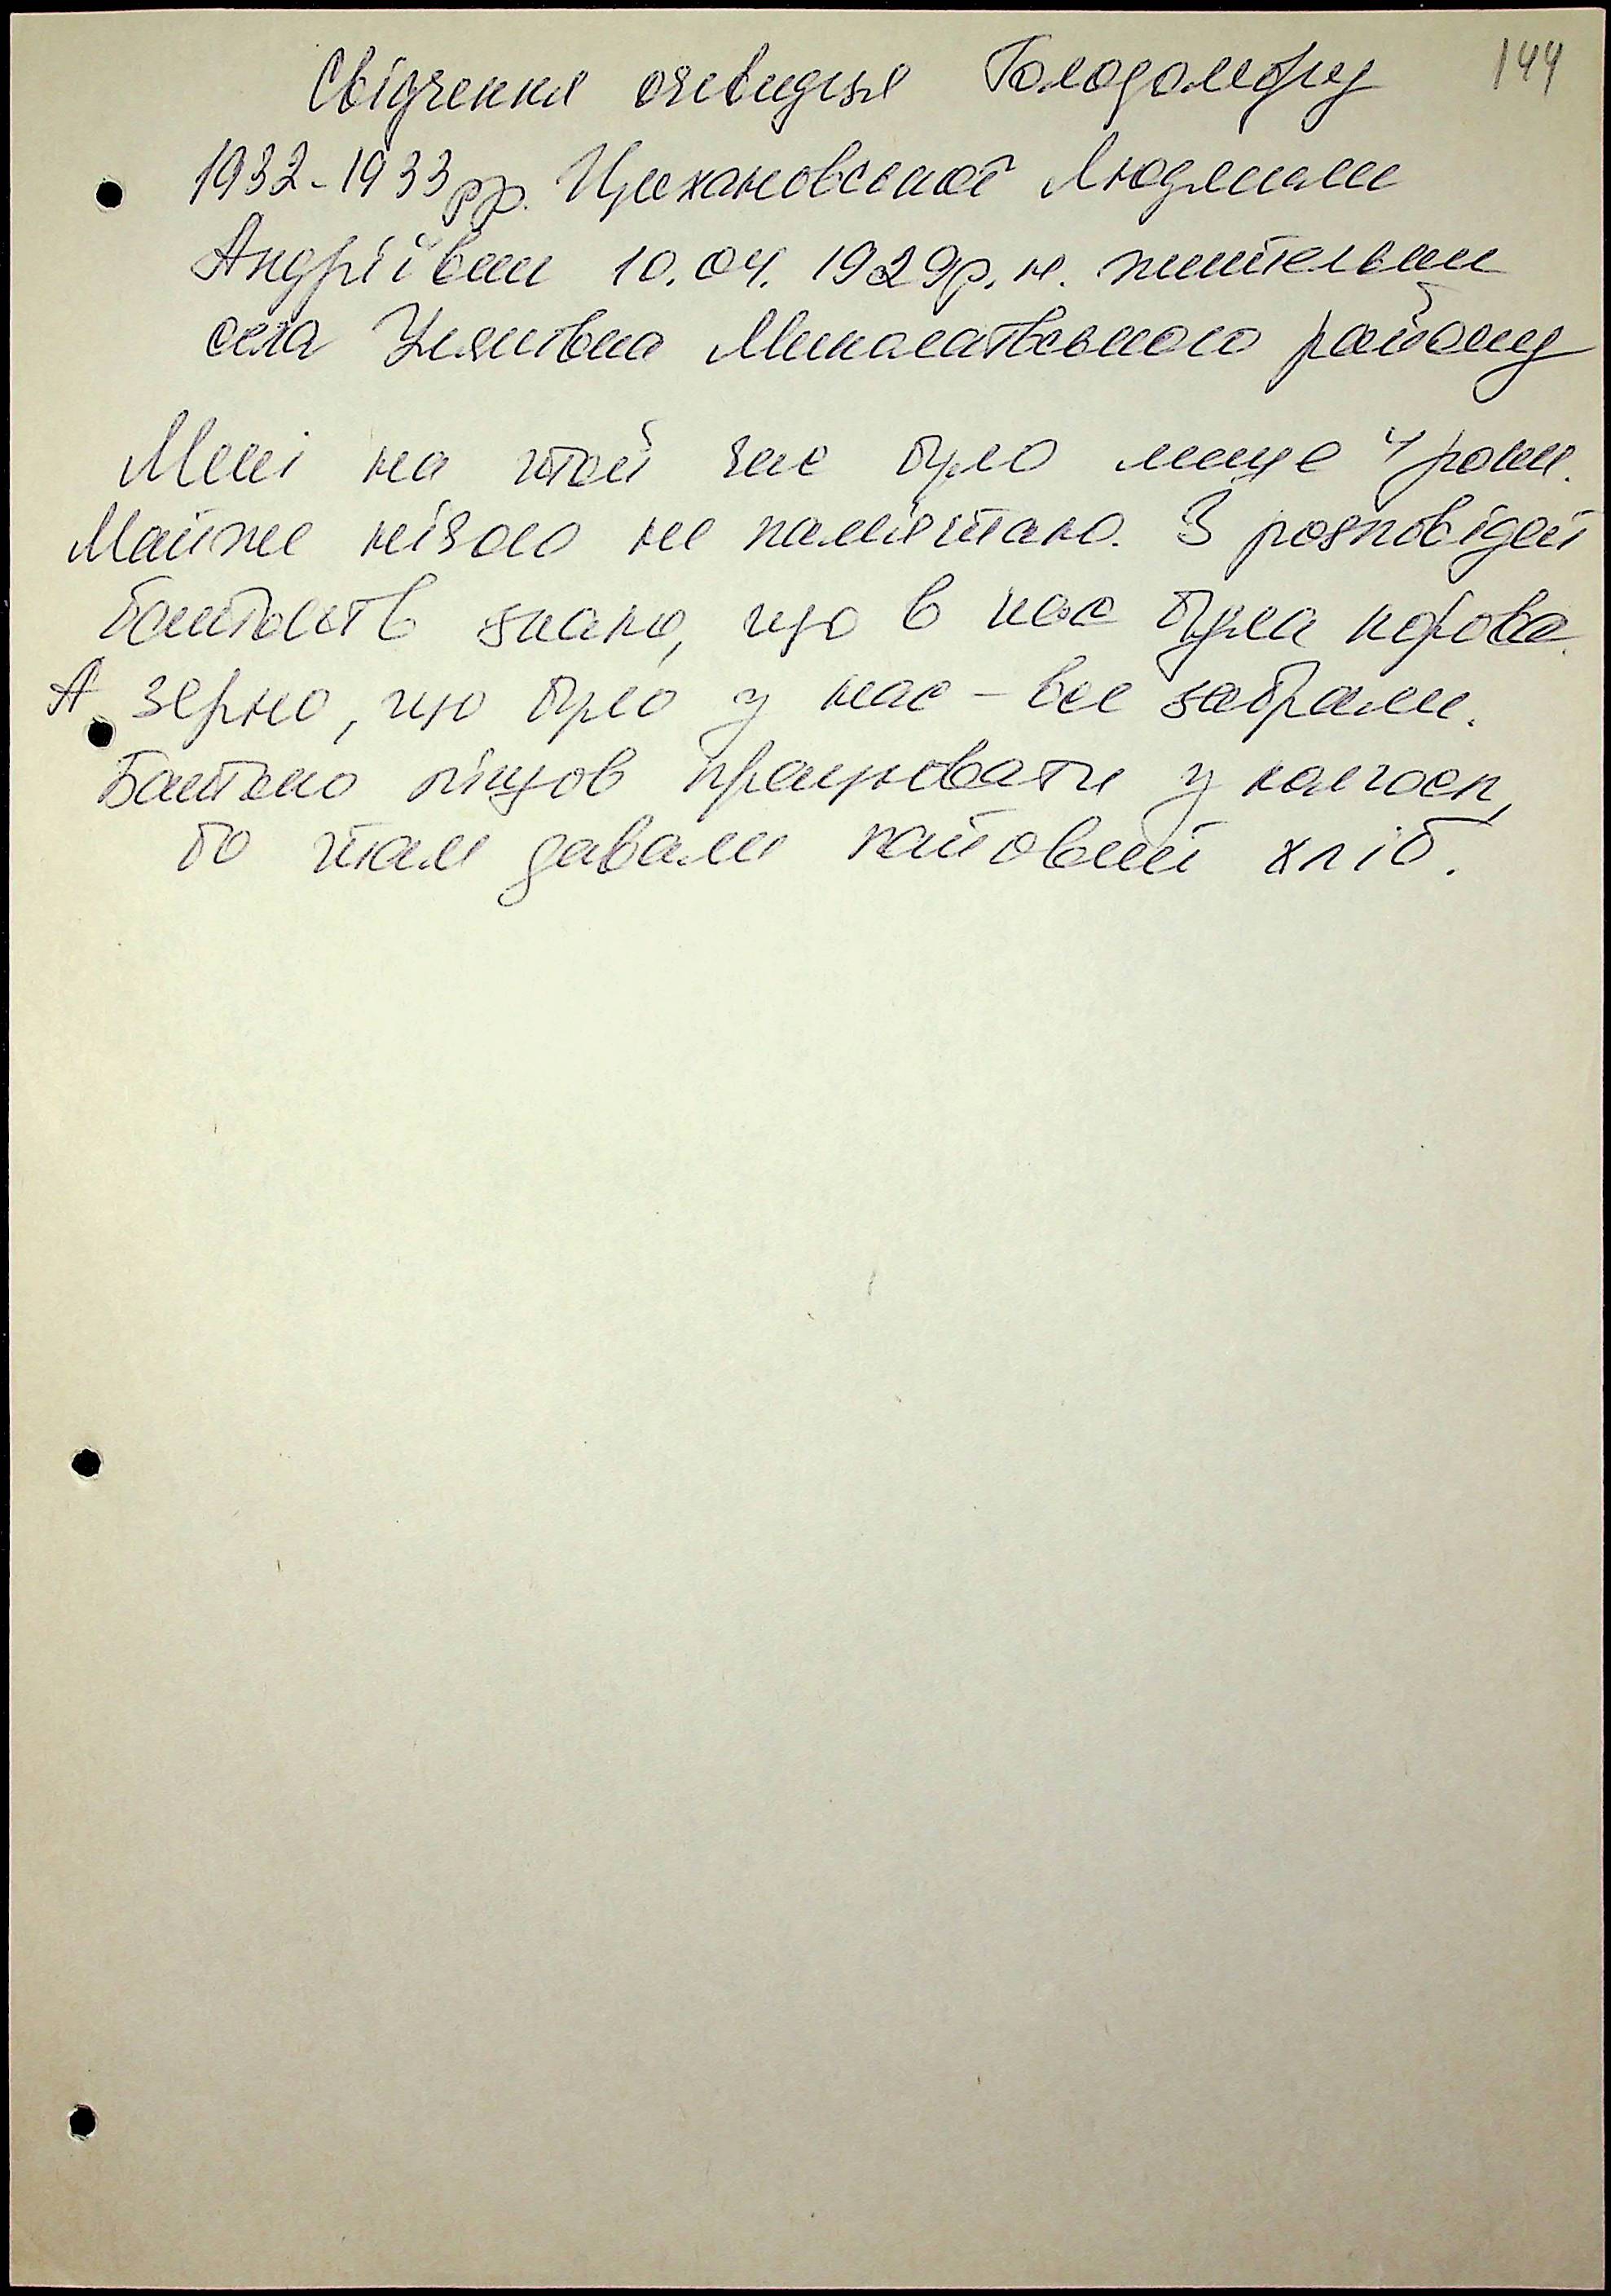 144
Свідчення очевидця Голодомору
1932-1933 рр. Цихановської Людмили
Андріївни 10.04.1929р.н. жительки
села Улянівка Миколаївського району
Мені на той час було лише 4 роки.
Майже нічого не пам'ятаю. З розповідей
батьків знаю, що в нас була корова.
А зерно, що було у нас – все забрали.
Батько пішов працювати у колгосп,
бо там давали пайовий хліб.